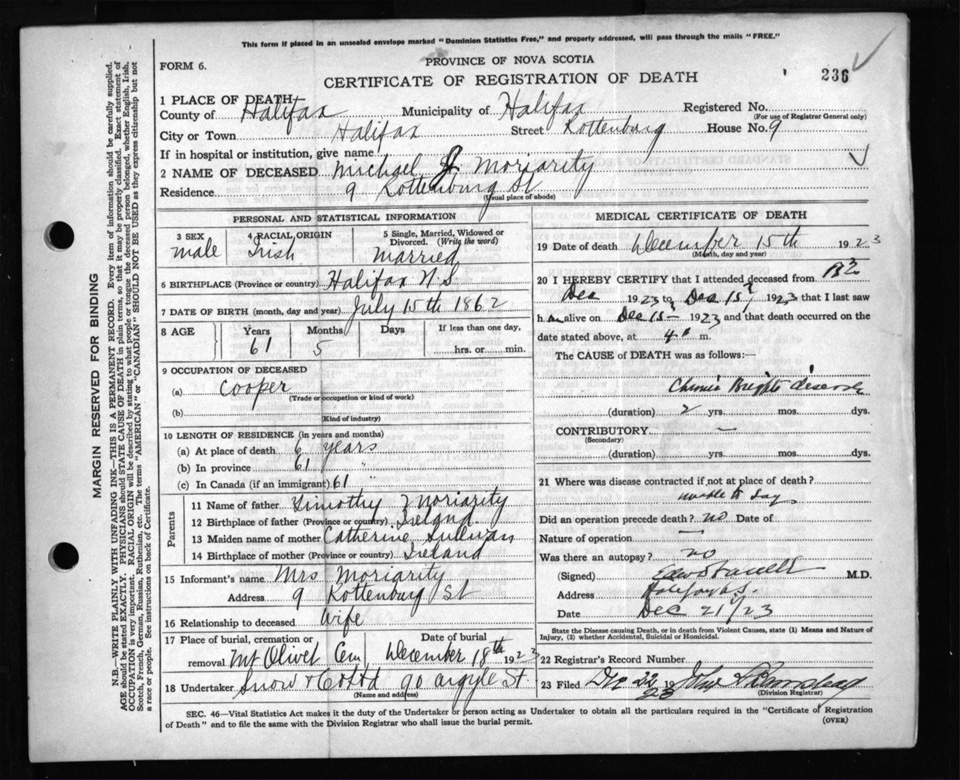 This form if placed in an unsealed envelope marked "Dominion Statistics Free," and properly addressed, will pass through the mails "FREE."
FORM 6.
PROVINCE OF NOVA SCOTIA
CERTIFICATE OF REGISTRATION OF DEATH
236
1 PLACE OF DEATH
County of Halifax Municipality of Halifax Registered No.
(For use of Registrar General only)
City or Town Halifax Street Rottenburg House No. 9
If in hospital or institution, give name
2 NAME OF DECEASED Michael J. Moriarity
Residence 9 Rottenburg St
(Usual place of abode)
PERSONAL AND STATISTICAL INFORMATION
3 SEX male
4 RACIAL ORIGIN Irish
5 Single, Married, Widowed or Divorced. (Write the word) Married
6 BIRTHPLACE (Province or country) Halifax N.S.
7 DATE OF BIRTH (month, day and year) July 15th 1862
8 AGE Years Months Days If less than one day,
61 5 hrs. or min.
9 OCCUPATION OF DECEASED
(a) Cooper
(Trade or occupation or kind of work)
(b)
(Kind of industry)
10 LENGTH OF RESIDENCE (in years and months)
(a) At place of death 6 years
(b) In province 61 "
(c) In Canada (if an immigrant) 61 "
Parents
11 Name of father Timothy Moriarity
12 Birthplace of father (Province or country) Ireland
13 Maiden name of mother Catherine Sullivan
14 Birthplace of mother (Province or country) Ireland
15 Informant's name Mrs Moriarity
Address 9 Rottenburg St
16 Relationship to deceased wife
17 Place of burial, cremation or removal Mt Olivet Cem
Date of burial December 18th 1923
18 Undertaker Snow & Co Ltd 90 Argyle St
(Name and address)
MEDICAL CERTIFICATE OF DEATH
19 Date of death December 15th 1923
(Month, day and year)
20 I HEREBY CERTIFY that I attended deceased from
Dec 1923 to Dec 15, 1923 that I last saw
him alive on Dec 15 - 1923 and that death occurred on the
date stated above, at 4 m.
The CAUSE of DEATH was as follows:—
Chronic Brights disease
(duration) 2 yrs. mos. dys.
CONTRIBUTORY —
(Secondary)
(duration) yrs. mos. dys.
21 Where was disease contracted if not at place of death?
unable to say
Did an operation precede death? no Date of
Nature of operation —
Was there an autopsy? no
(Signed) M.D.
Address Halifax N.S.
Date Dec 21/23
State the Disease causing Death, or in death from Violent Causes, state (1) Means and Nature of
Injury, (2) whether Accidental, Suicidal or Homicidal.
22 Registrar's Record Number
23 Filed Dec 22 1923
(Division Registrar)
SEC. 46—Vital Statistics Act makes it the duty of the Undertaker or person acting as Undertaker to obtain all the particulars required in the "Certificate of Registration
of Death" and to file the same with the Division Registrar who shall issue the burial permit.
(OVER)
MARGIN RESERVED FOR BINDING
N.B.—WRITE PLAINLY WITH UNFADING INK—THIS IS A PERMANENT RECORD. Every item of information should be carefully supplied.
AGE should be stated EXACTLY. PHYSICIANS should STATE CAUSE OF DEATH in plain terms, so that it may be properly classified. Exact statement of
OCCUPATION is very important. RACIAL ORIGIN will be described by stating to what people or tongue the deceased person belonged, whether English, Irish,
Scotch, French, German, Russian, Ruthenian, etc. The terms "AMERICAN" or "CANADIAN" SHOULD NOT BE USED as they express citizenship but not
a race or people. See instructions on back of Certificate.